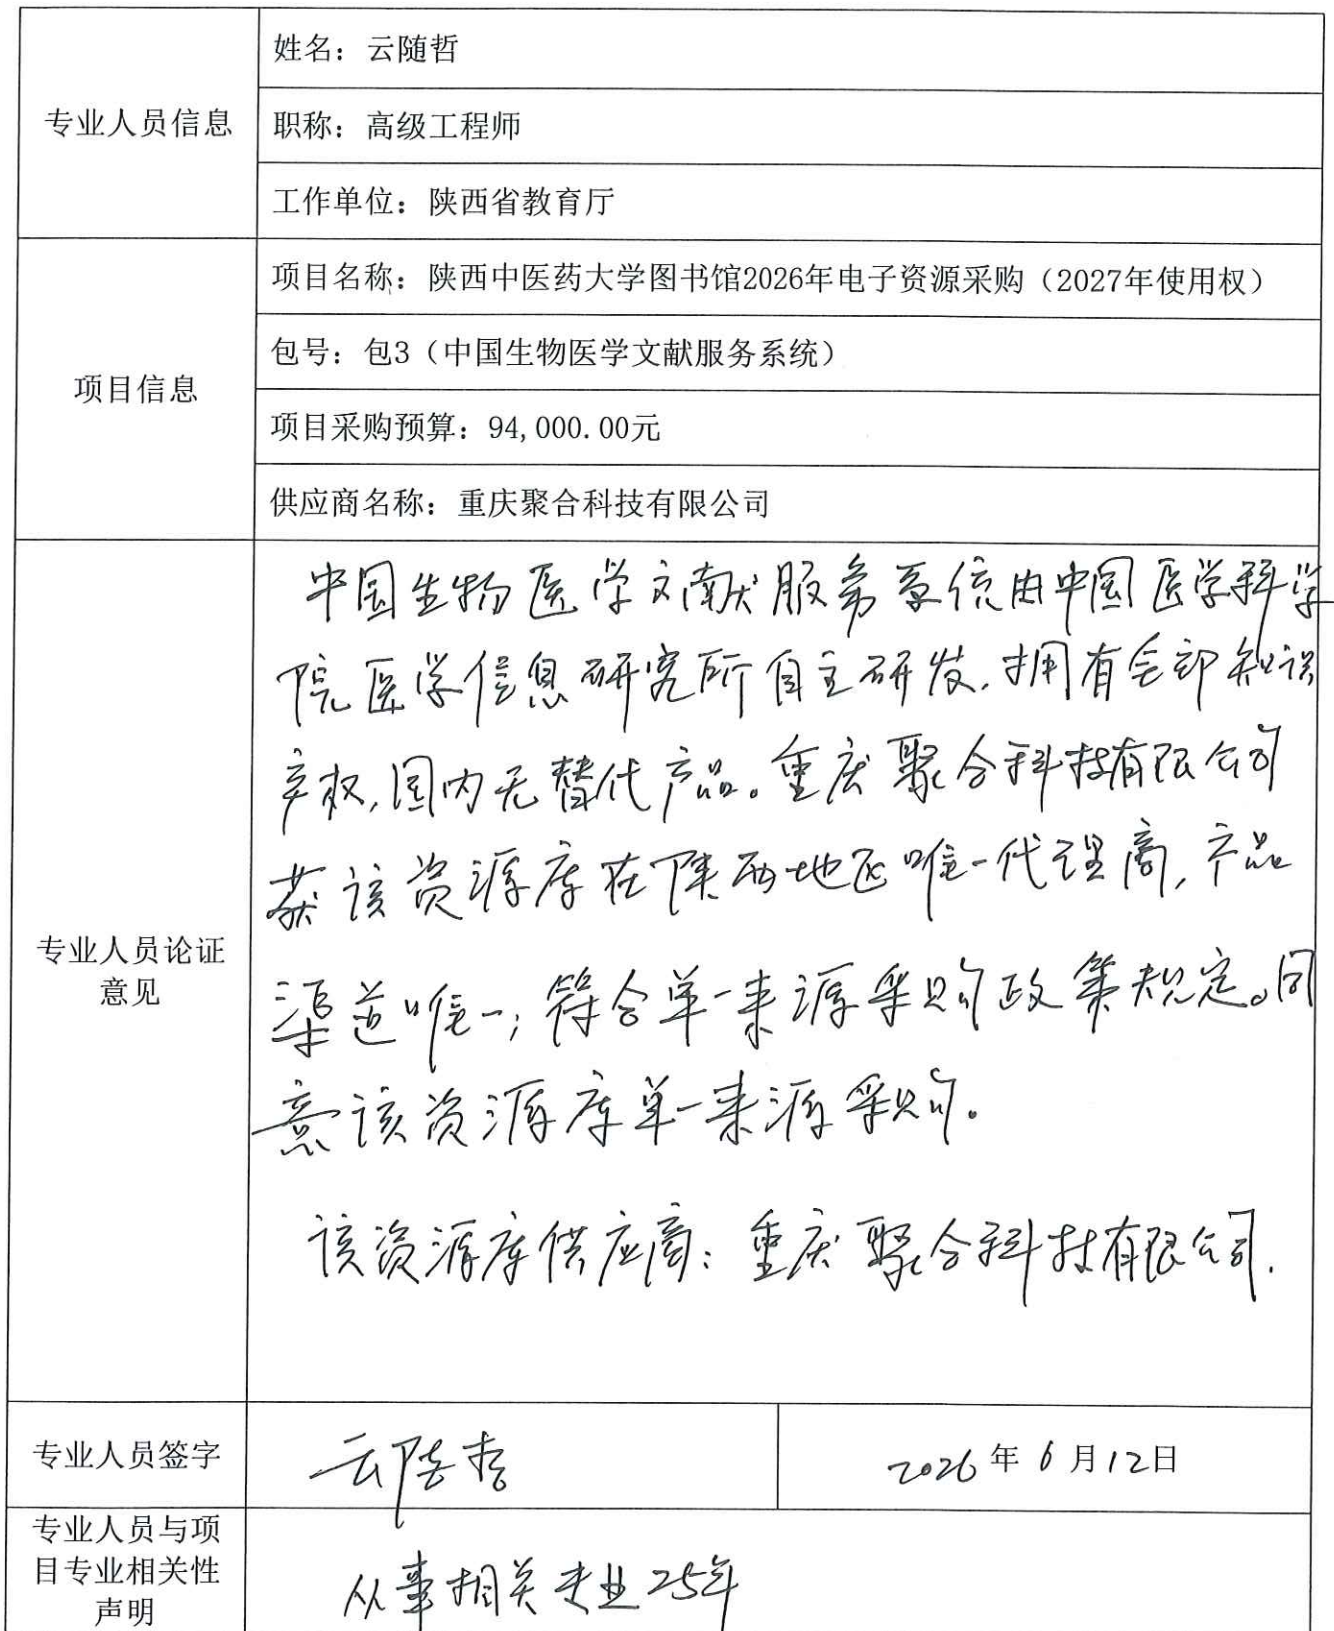 专业人员信息
姓名：云随哲
职称：高级工程师
工作单位：陕西省教育厅
项目信息
项目名称：陕西中医药大学图书馆2026年电子资源采购（2027年使用权）
包号：包3（中国生物医学文献服务系统）
项目采购预算：94,000.00元
供应商名称：重庆聚合科技有限公司
专业人员论证
意见
中国生物医学文献服务系统由中国医学科学
院医学信息研究所自主研发，拥有全部知识
产权，国内无替代产品。重庆聚合科技有限公司
获该资源库在陕西地区唯一代理商，产品
渠道唯一；符合单一来源采购政策规定。同
意该资源库单一来源采购。
该资源库供应商：重庆聚合科技有限公司.
专业人员签字
云随哲
2026年6月12日
专业人员与项
目专业相关性
声明
从事相关专业25年